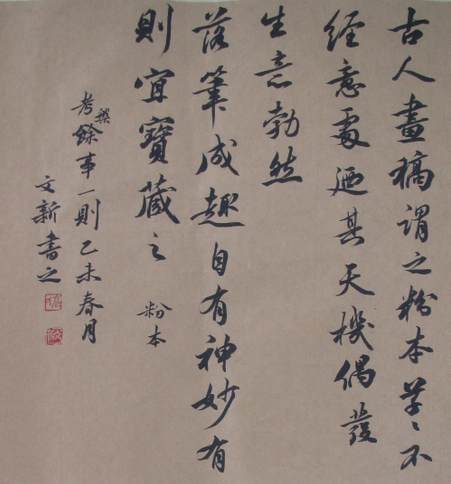 古人畫稿謂之粉本草々不
經意處迺其天機偶發
生意勃然
落筆成趣自有神妙有
則宜寶藏之 粉本
考槃餘事一則乙未春月
文新書之